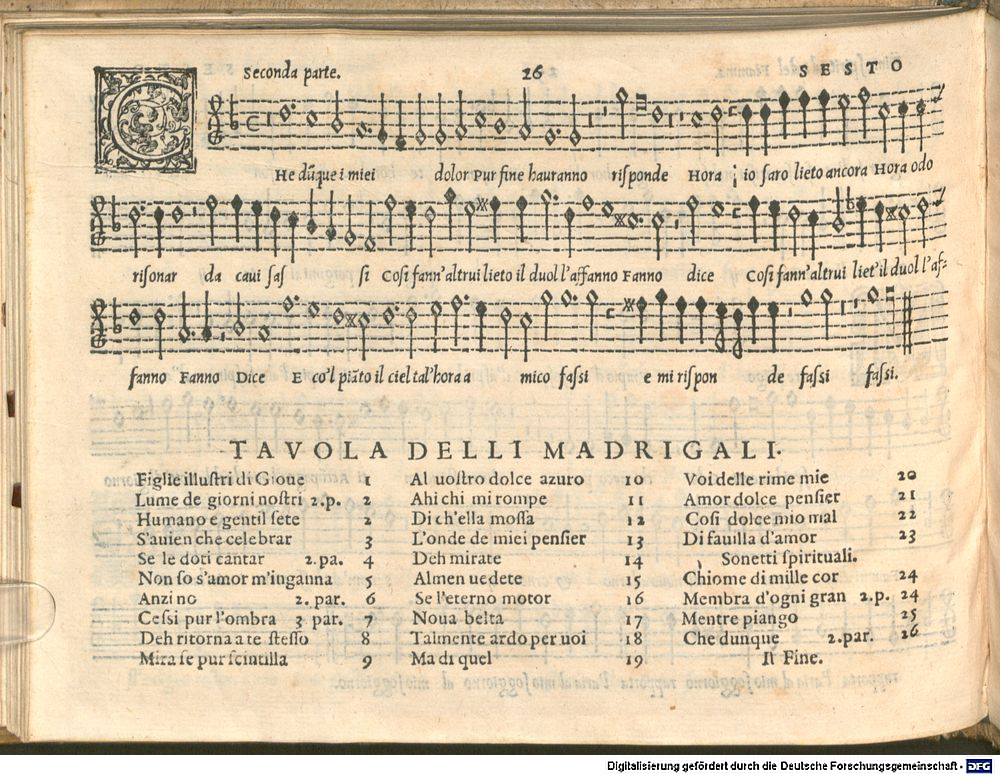 Seconda parte. 26 SESTO
CHe dūque i miei dolor Pur fine hauranno risponde Hora io saro lieto ancora Hora odo
risonar da caui sas si Cosi fann'altrui lieto il duol l'affanno Fanno dice Cosi fann'altrui liet'il duol l'af-
fanno Fanno Dice E co'l piāto il ciel tal'hora a mico fassi e mi rispon de fassi fassi.
TAVOLA DELLI MADRIGALI.
Figlie illustri di Gioue 1
Lume de giorni nostri 2.p. 2
Humano e gentil sete 2
S'auien che celebrar 3
Se le doti cantar 2.pa. 4
Non so s'amor m'inganna 5
Anzi no 2. par. 6
Cessi pur l'ombra 3 par. 7
Deh ritorna a te stesso 8
Mira se pur scintilla 9
Al uostro dolce azuro 10
Ahi chi mi rompe 11
Di ch'ella mossa 12
L'onde de miei pensier 13
Deh mirate 14
Almen uedete 15
Se l'eterno motor 16
Noua belta 17
Talmente ardo per uoi 18
Ma di quel 19
Voi delle rime mie 20
Amor dolce pensier 21
Cosi dolce mio mal 22
Di fauilla d'amor 23
Sonetti spirituali.
Chiome di mille cor 24
Membra d'ogni gran 2.p. 24
Mentre piango 25
Che dunque 2.par. 26
Il Fine.
Digitalisierung gefördert durch die Deutsche Forschungsgemeinschaft - DFG